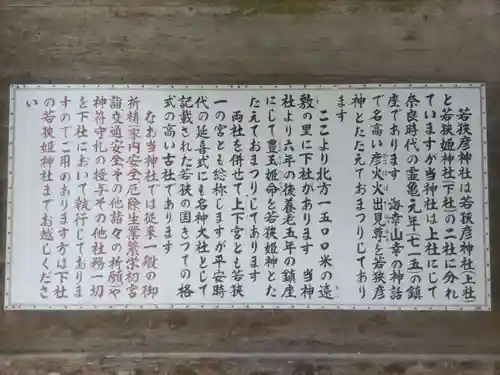 若狭彦神社は若狭彦神社(上社)
と若狭姫神社(下社)の二社に分れ
ていますが当神社は上社にして
奈良時代の霊亀元年(七一五)の鎮
座であります 海幸山幸の神話
で名高い彦火火出見尊を若狭彦
神とたたえておまつりしてあり
ます
ここより北方一五〇〇米の遠
敷の里に下社があります 当神
社より六年の後養老五年の鎮座
にして豊玉姫命を若狭姫神とた
たえておまつりしてあります
両社を併せて上下宮とも若狭
一の宮とも総称しますが平安時
代の延喜式にも名神大社として
記載された若狭の国きつての格
式の高い古社であります
なお当神社では従来一般の御
祈祷(家内安全厄除生業繁栄初宮
詣交通安全その他諸々の祈願)や
神符守札の授与その他社務一切
を下社において執行しておりま
すのでご用のあります方は下社
の若狭姫神社までお越しくださ
い